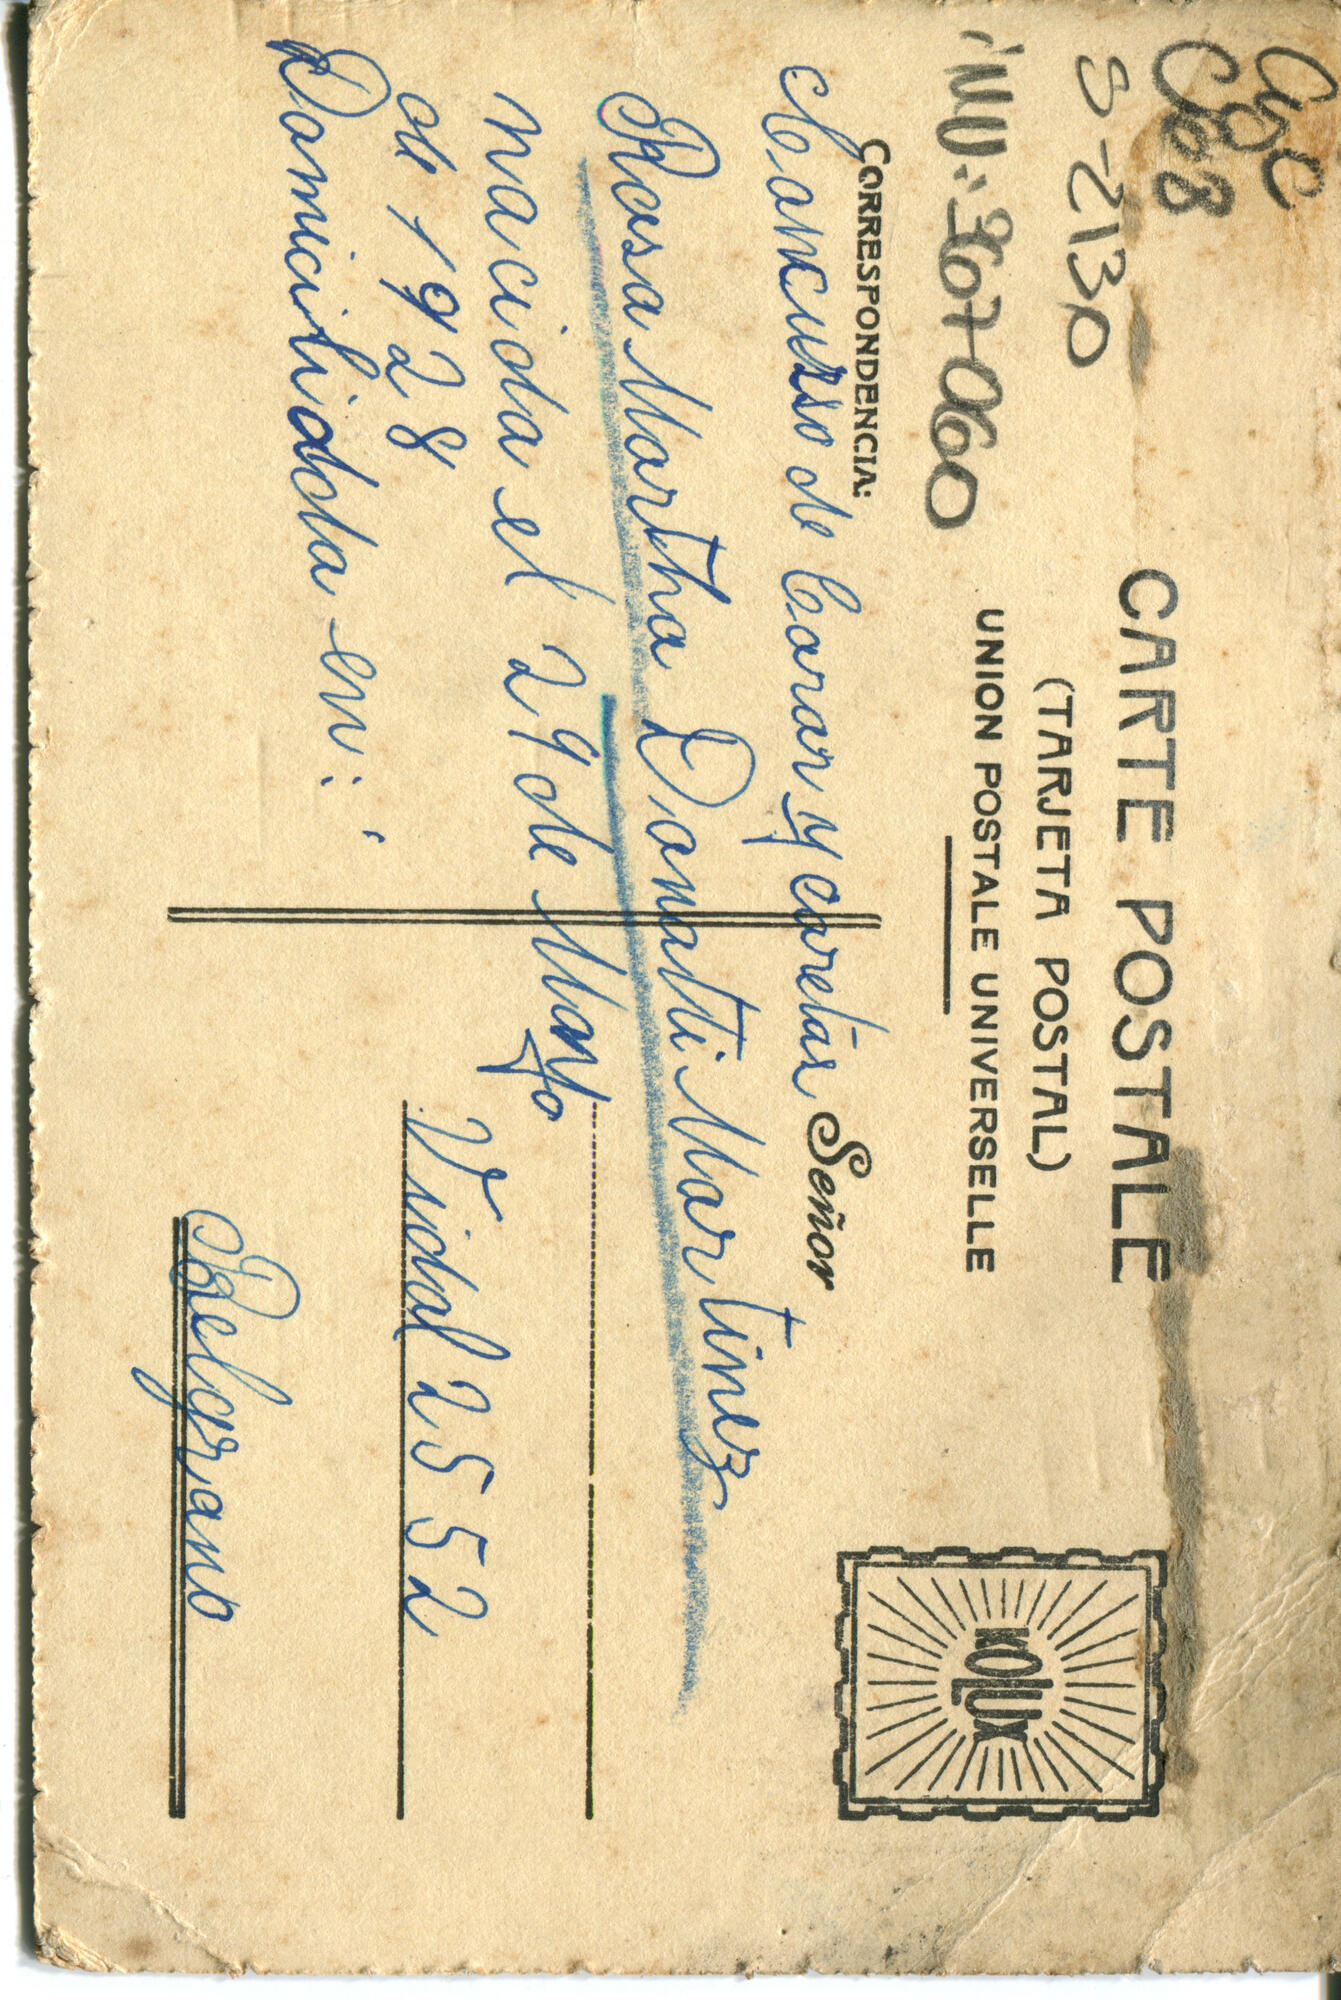 CARTE POSTALE
(TARJETA POSTAL)
UNION POSTALE UNIVERSELLE
C 68
S-2130
INV.: 307060
CORRESPONDENCIA:
Señor
KOLUX
Concurso de Caras y caretas
Rosa Martha Donati Martinez
nacida el 29 de Mayo
de 1928
Domiciliada en:
Vidal 2552
Belgrano